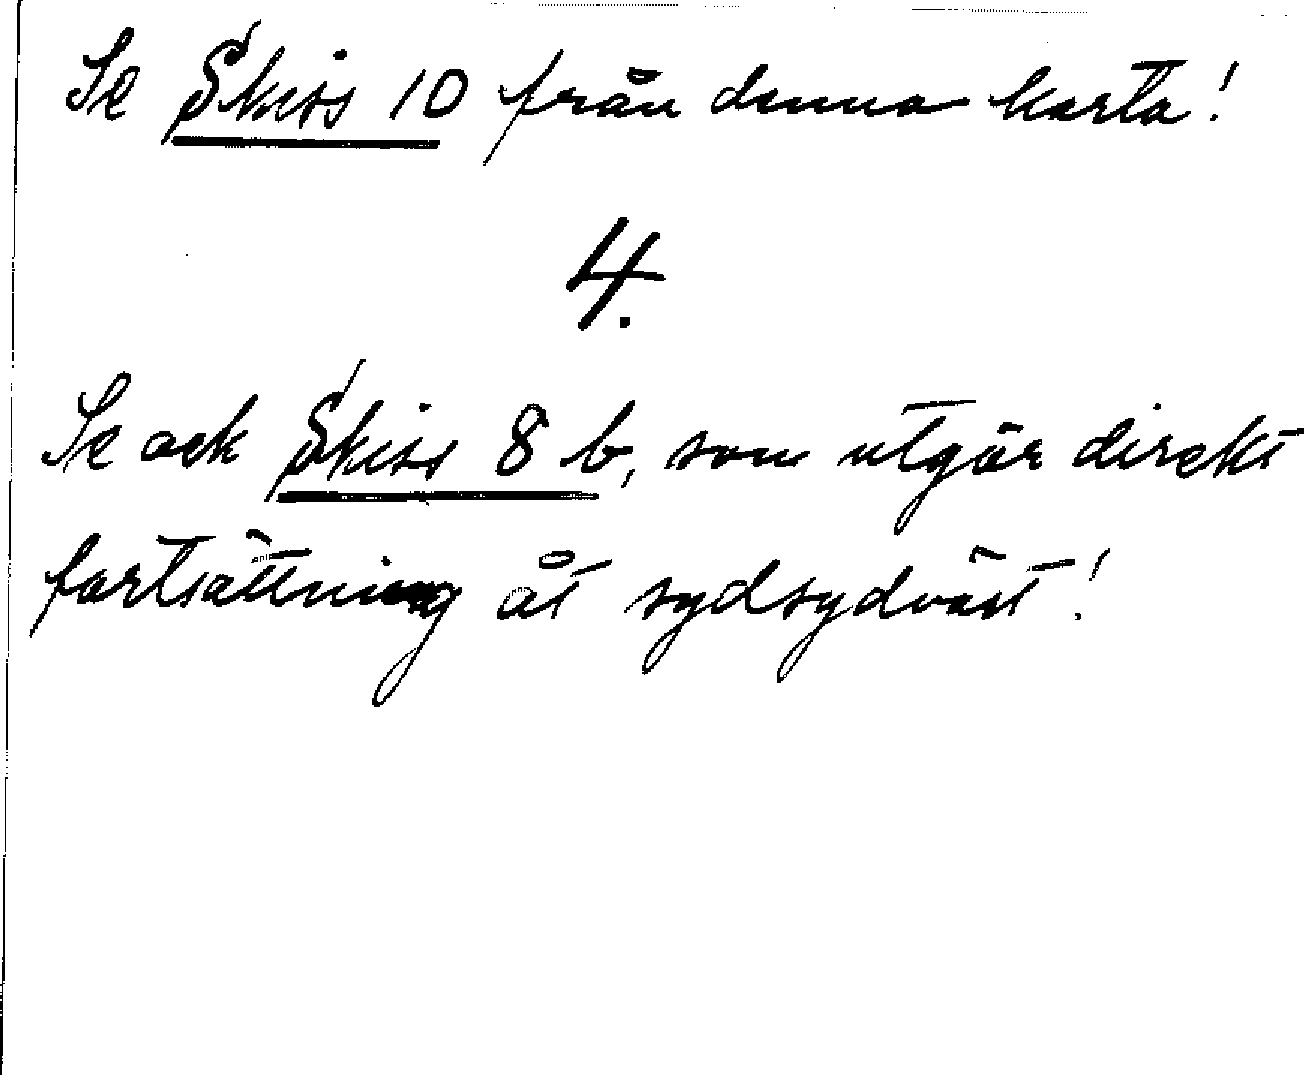 Se Skiss 10 från denna karta!
4.
Se ock Skiss 8 b, som utgör direkt
fortsättning åt sydsydväst!